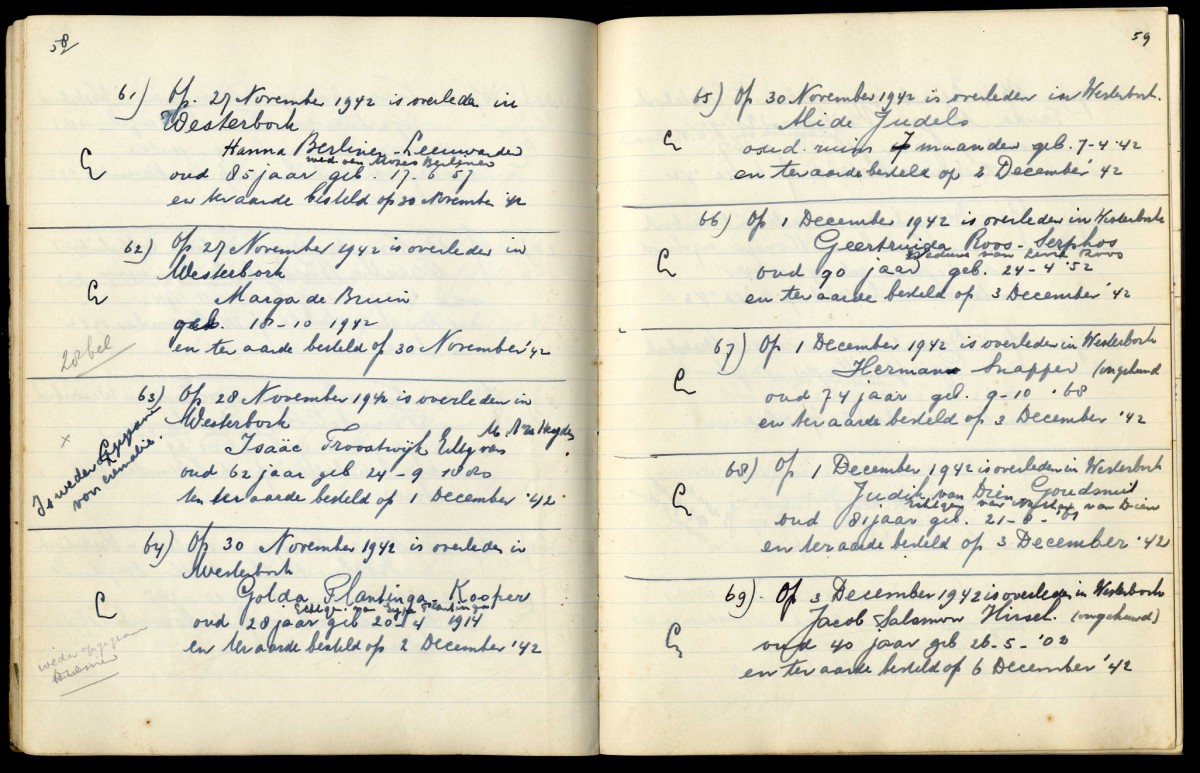 58
61) Op. 27 November 1942 is overleden in
Westerbork
Hanna Berliner-Leeuwarder
wed. van Mozes Berliner
E oud 85 jaar geb. 17-6 57
en ter aarde besteld op 30 November '42
62) Op 27 November 1942 is overleden in
Westerbork
E Marga de Bruin
geb. 18-10 1942
en ter aarde besteld op 30 November '42
63) Op 28 November 1942 is overleden in
Westerbork
Isaäc Troostwijk Echtg van
oud 62 jaar geb 24-9 1880
en ter aarde besteld op 1 December '42.
Is weder Opgegraven
voor crematie.
x
64) Op 30 November 1942 is overleden in
Westerbork
Golda Plantinga-Kooper
Echtge. van Plantinga
E oud 28 jaar geb 20-4 1914
en ter aarde besteld op 2 December '42
weder opgegraven
59
65) Op 30 November 1942 is overleden in Westerbork.
Alide Judels
E oud ruim 7 maanden geb. 7-4-42
en ter aarde besteld op 2 December '42
66) Op 1 December 1942 is overleden in Westerbork
Geertruida Roos-Serphos
Weduwe van Levie Roos
E oud 90 jaar geb. 24-4 '52
en ter aarde besteld op 3 December '42
67) Op 1 December 1942 is overleden in Westerbork
Herman Snapper (ongehuwd
E oud 74 jaar geb. 9-10 '68
en ter aarde besteld op 3 December '42
68) Op 1 December 1942 is overleden in Westerbork
Judik van Dien Goudsmit
van Dien
E oud 81 jaar geb. 21-6-'61
en ter aarde besteld op 3 December '42
69). Op 3 December 1942 is overleden in Westerbork
Jacob Salomon Hirsch. (ongehuwd)
E oud 40 jaar geb 26-5-'02
en ter aarde besteld op 6 December '42